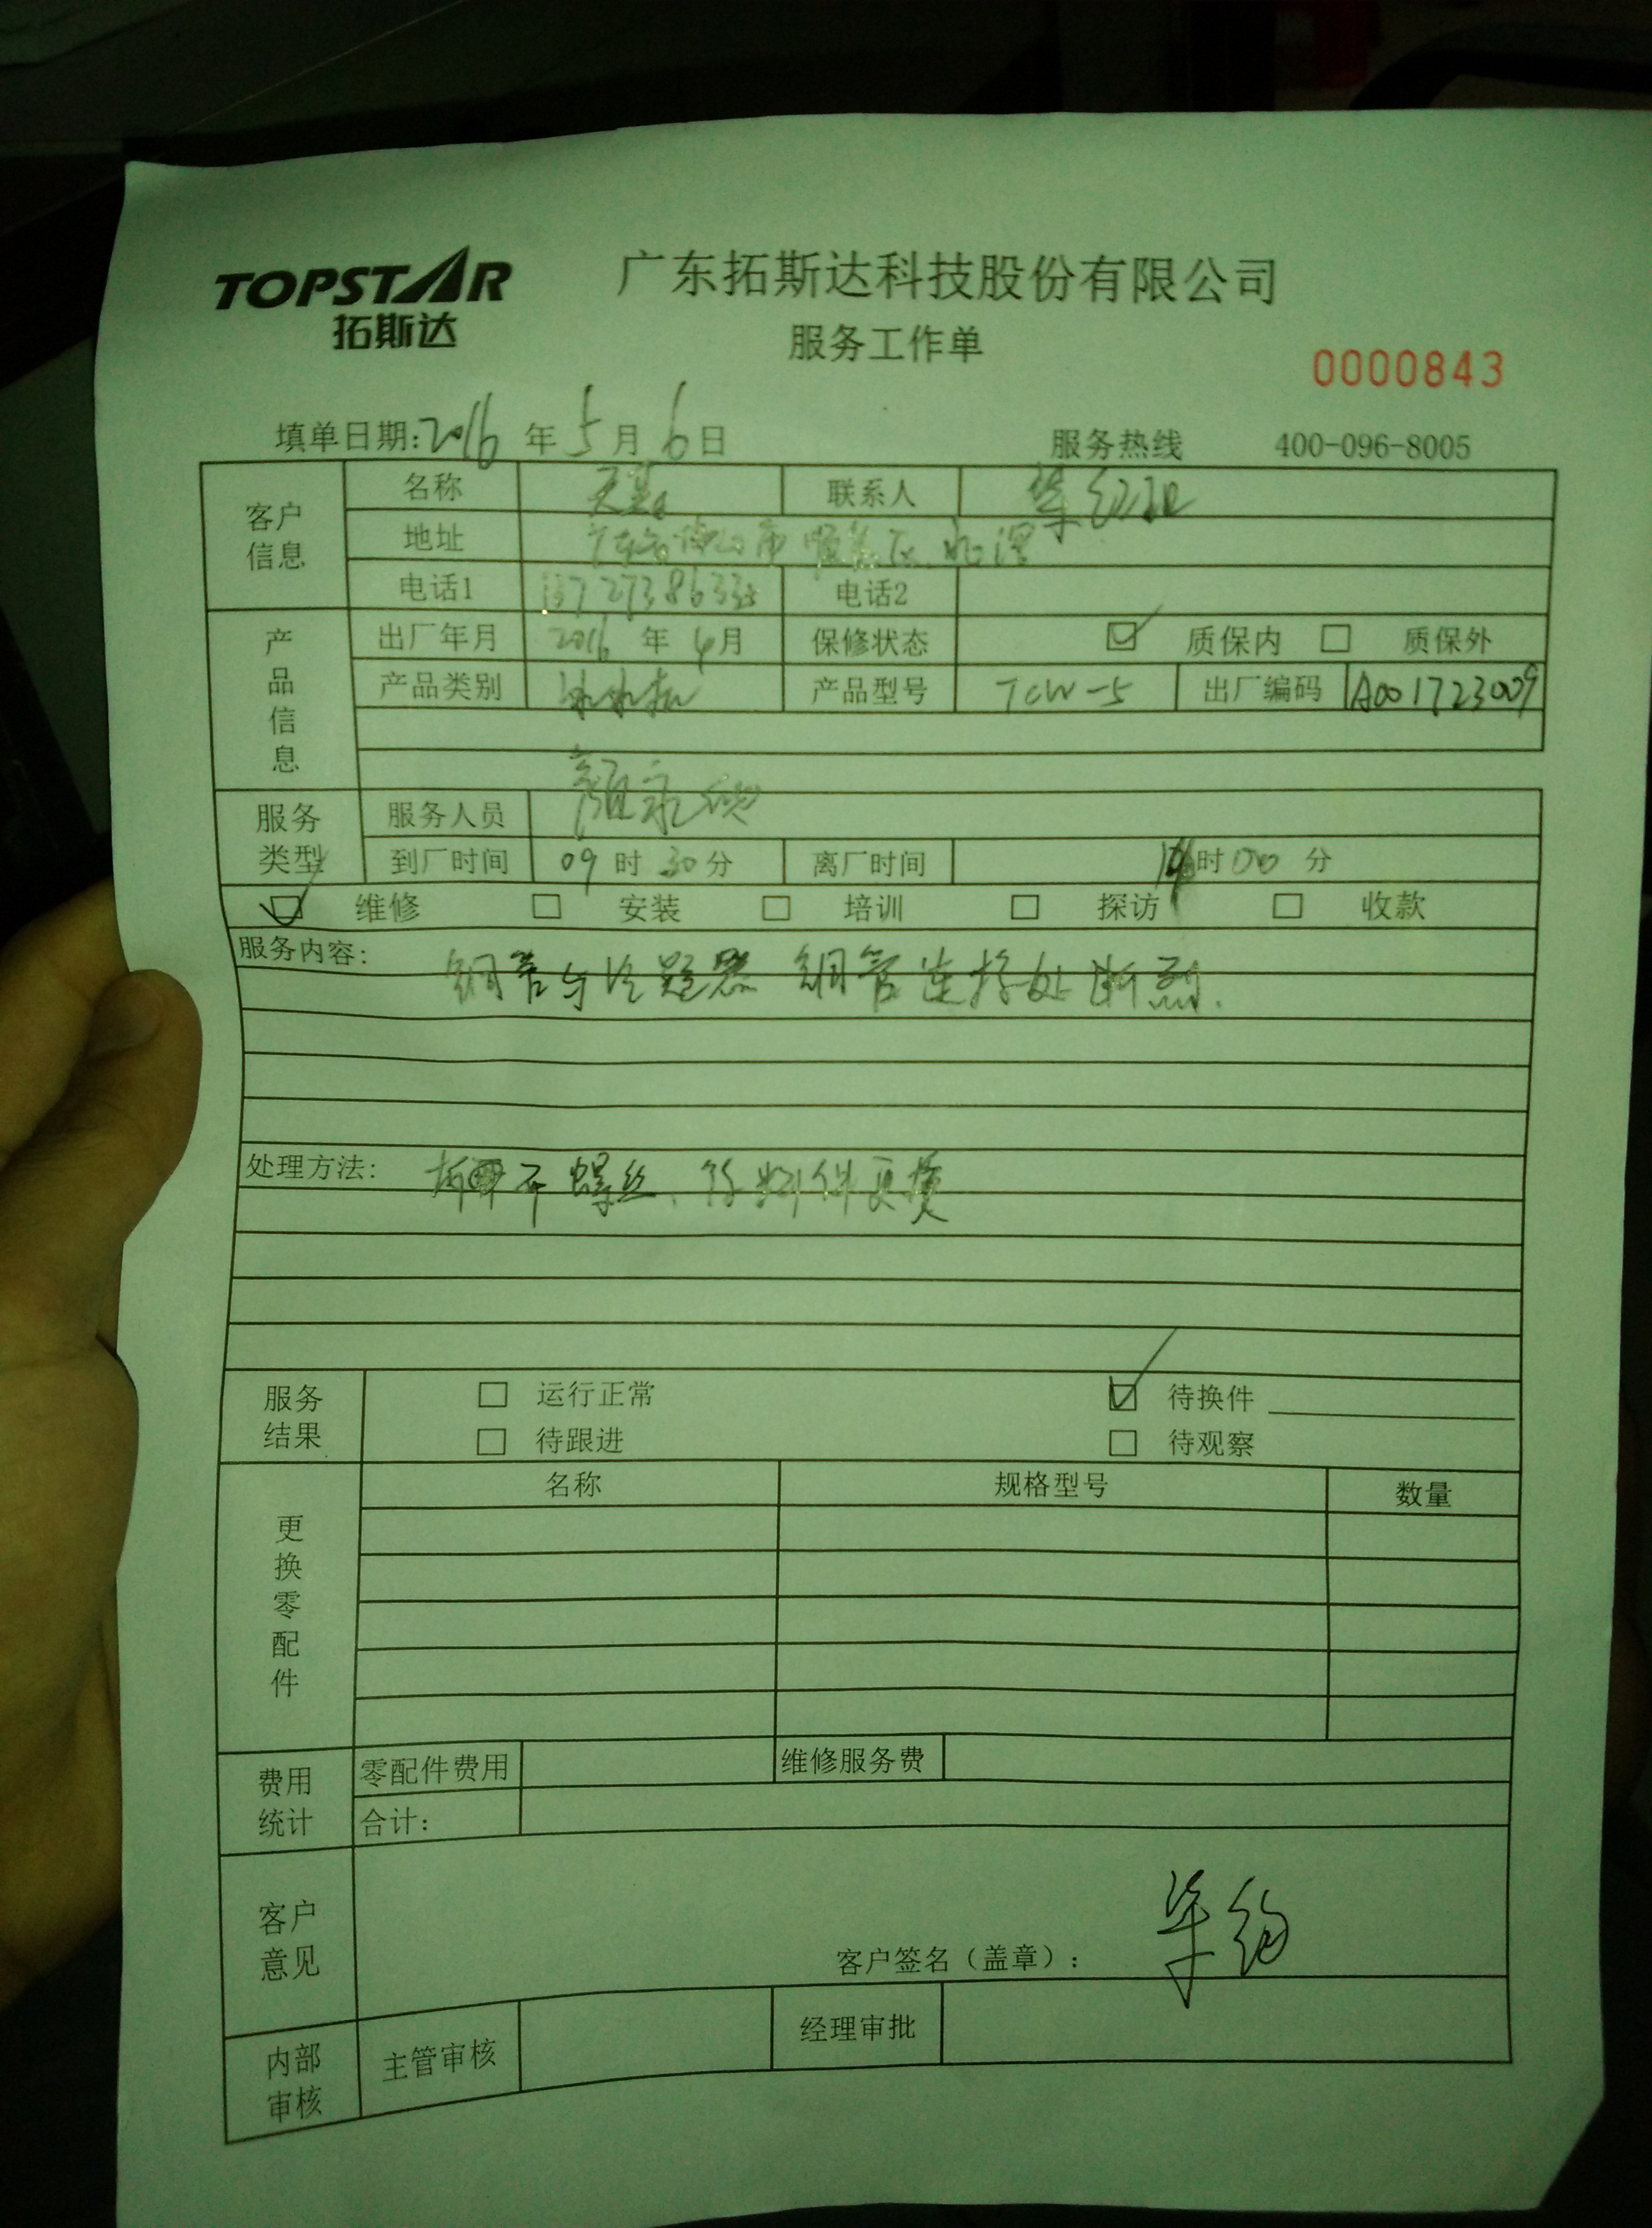 TOPSTAR
拓斯达
广东拓斯达科技股份有限公司
服务工作单
0000843
填单日期:2016年5月6日 服务热线 400-096-8005
客户信息
名称 联系人
地址 广东省佛山市顺德区
电话1 电话2
产品信息
出厂年月 2016年4月 保修状态 ☑ 质保内 □ 质保外
产品类别 冰水机 产品型号 TCW-5 出厂编码 A001723009
服务类型
服务人员 颜永
到厂时间 09时30分 离厂时间 时00分
☑ 维修 □ 安装 □ 培训 □ 探访 □ 收款
服务内容: 铜管与冷凝器 铜管连接处断裂.
处理方法: 拆开螺丝、待料件更换
服务结果
□ 运行正常 ☑ 待换件
□ 待跟进 □ 待观察
更换零配件
名称 规格型号 数量
费用统计
零配件费用 维修服务费
合计:
客户意见
客户签名（盖章）:
内部审核
主管审核 经理审批